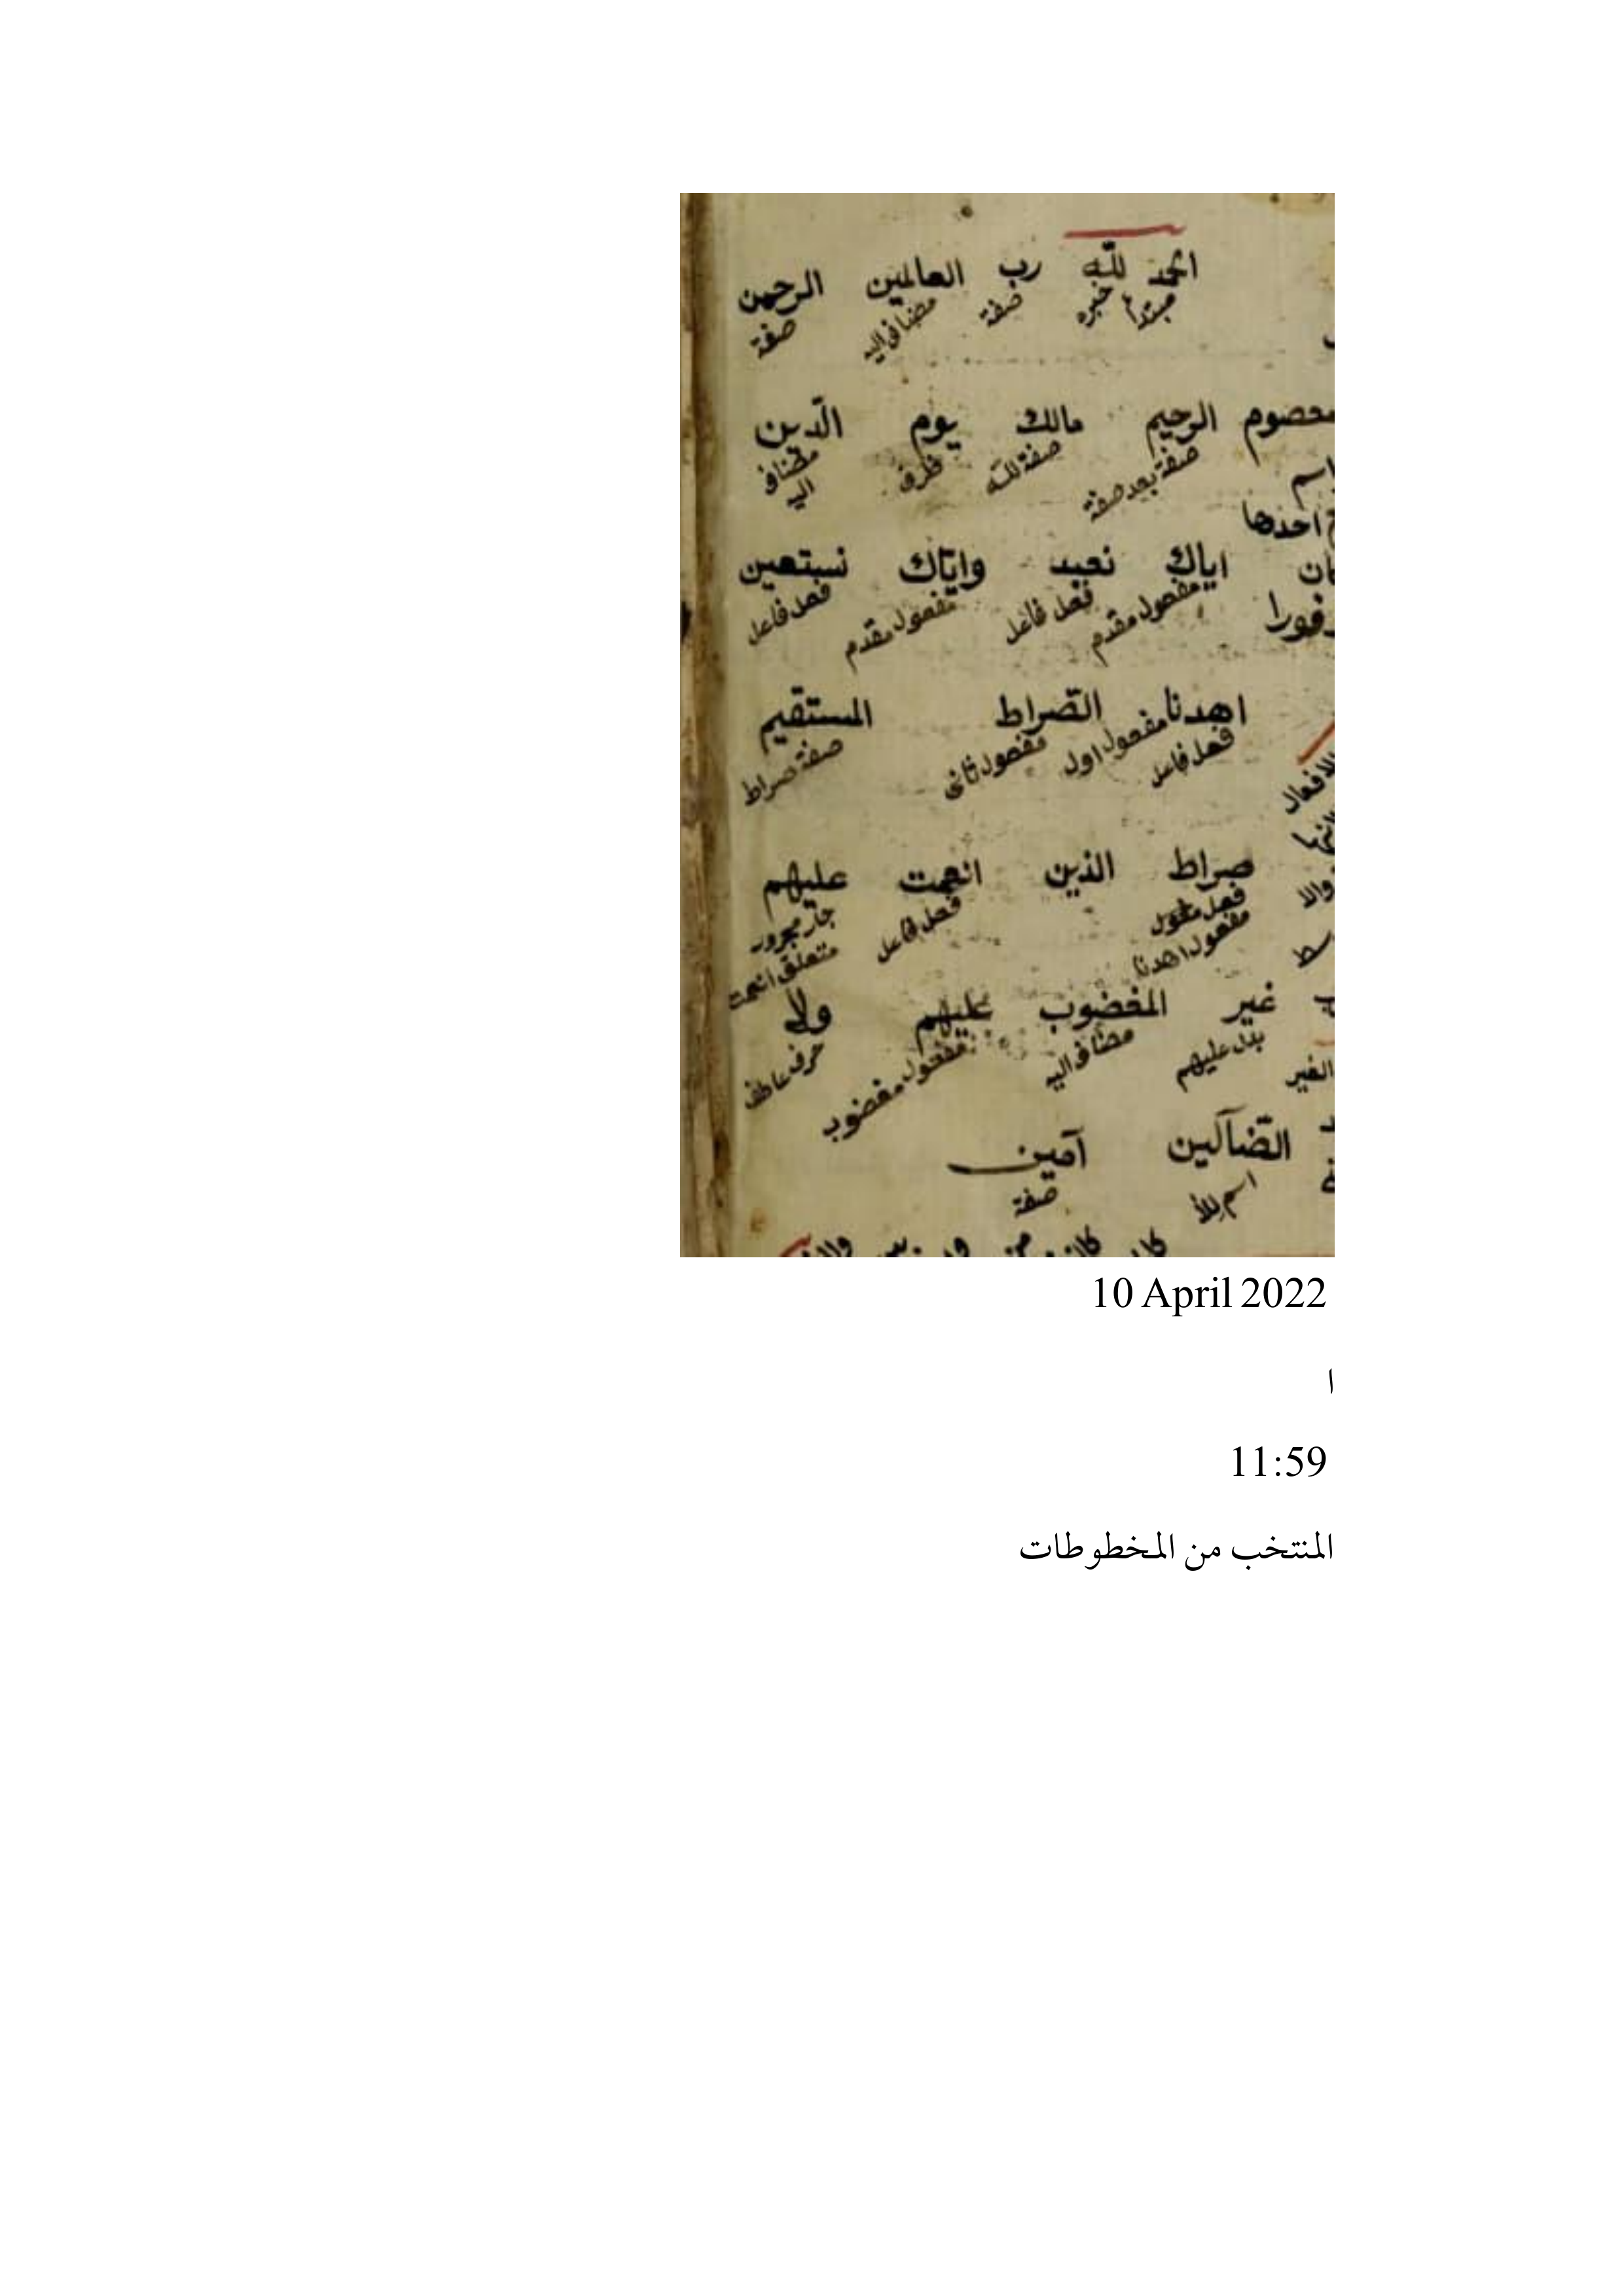 الحمد لله رب العالمين الرحمن
مبتدأ خبره صفة مضاف اليه صفة
معصوم الرحيم مالك يوم الدّين
صفة بعد صفة صفة لله ظرف مضاف اليه
اسم
احدها
اياك نعبد واياك نستعين
مفعول مقدم فعل فاعل مفعول مقدم فعل فاعل
اهدنا الصّراط المستقيم
فعل فاعل مفعول اول مفعول ثانى صفة صراط
الافعال
صراط الذين انعمت عليهم
والا
فعل فاعل جار مجرور
مفعول اهدنا متعلق انعمت
غير المغضوب عليهم ولا
بدل عليهم مضاف اليه مفعول مغضوب حرف عاطف
الغير
الضّآلين آمين
اسم للا صفة
10 April 2022
ا
11:59
المنتخب من المخطوطات